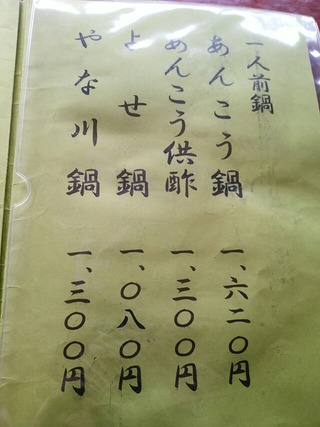 一人前鍋
あんこう鍋 一、六二〇円
あんこう供酢 一、三〇〇円
よせ鍋 一、〇八〇円
やな川鍋 一、三〇〇円